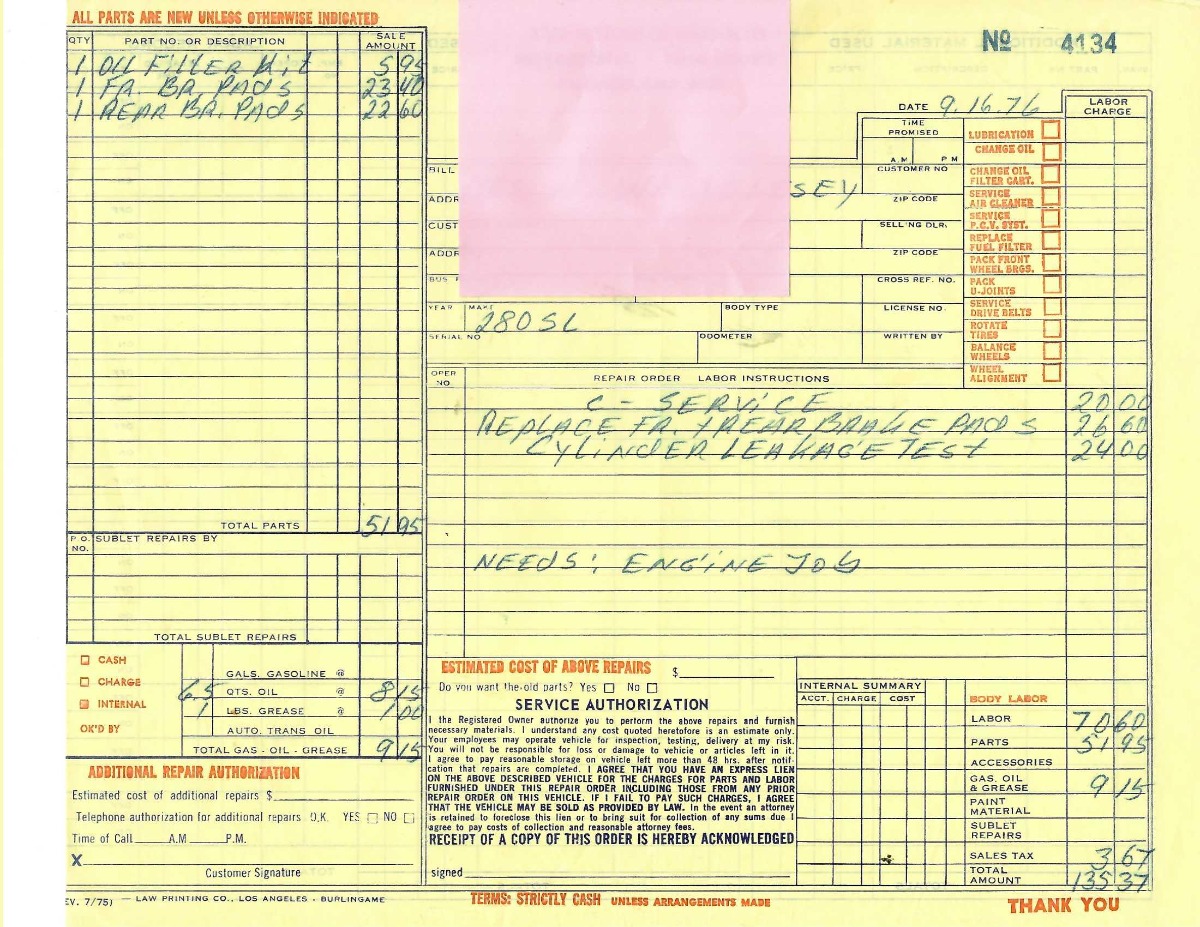 ALL PARTS ARE NEW UNLESS OTHERWISE INDICATED
QTY PART NO. OR DESCRIPTION SALE AMOUNT
1 OIL FILTER KIT 5 95
1 FR. BR. PADS 23 40
1 REAR BR. PADS 22 60
TOTAL PARTS 51 95
P.O. NO. SUBLET REPAIRS BY
TOTAL SUBLET REPAIRS
CASH
CHARGE
INTERNAL
OK'D BY
GALS. GASOLINE @
6.5 QTS. OIL @ 8 15
1 LBS. GREASE @ 1 00
AUTO. TRANS OIL
TOTAL GAS - OIL - GREASE 9 15
ADDITIONAL REPAIR AUTHORIZATION
Estimated cost of additional repairs $
Telephone authorization for additional repairs O.K. YES NO
Time of Call A.M P.M.
X
Customer Signature
EV. 7/75) — LAW PRINTING CO., LOS ANGELES - BURLINGAME
No 4134
DATE 9.16.76
LABOR CHARGE
TIME PROMISED
A.M P M
BILL
SEY
CUSTOMER NO
ADDR
ZIP CODE
CUST
SELL'NG DLR.
ADDR
ZIP CODE
BUS. P
CROSS REF. NO.
YEAR MAKE BODY TYPE LICENSE NO.
280 SL
SERIAL NO ODOMETER WRITTEN BY
LUBRICATION
CHANGE OIL
CHANGE OIL FILTER CART.
SERVICE AIR CLEANER
SERVICE P.C.V. SYST.
REPLACE FUEL FILTER
PACK FRONT WHEEL BRGS.
PACK U-JOINTS
SERVICE DRIVE BELTS
ROTATE TIRES
BALANCE WHEELS
WHEEL ALIGNMENT
OPER NO. REPAIR ORDER LABOR INSTRUCTIONS
C - SERVICE 20 00
REPLACE FR. + REAR BRAKE PADS 26 60
CYLINDER LEAKAGE TEST 24 00
NEEDS: ENGINE JOB
ESTIMATED COST OF ABOVE REPAIRS $
Do you want the old parts? Yes No
SERVICE AUTHORIZATION
I the Registered Owner authorize you to perform the above repairs and furnish
necessary materials. I understand any cost quoted heretofore is an estimate only.
Your employees may operate vehicle for inspection, testing, delivery at my risk.
You will not be responsible for loss or damage to vehicle or articles left in it.
I agree to pay reasonable storage on vehicle left more than 48 hrs. after notif-
cation that repairs are completed. I AGREE THAT YOU HAVE AN EXPRESS LIEN
ON THE ABOVE DESCRIBED VEHICLE FOR THE CHARGES FOR PARTS AND LABOR
FURNISHED UNDER THIS REPAIR ORDER INCLUDING THOSE FROM ANY PRIOR
REPAIR ORDER ON THIS VEHICLE. IF I FAIL TO PAY SUCH CHARGES, I AGREE
THAT THE VEHICLE MAY BE SOLD AS PROVIDED BY LAW. In the event an attorney
is retained to foreclose this lien or to bring suit for collection of any sums due I
agree to pay costs of collection and reasonable attorney fees.
RECEIPT OF A COPY OF THIS ORDER IS HEREBY ACKNOWLEDGED
signed
INTERNAL SUMMARY
ACCT. CHARGE COST
BODY LABOR
LABOR 70 60
PARTS 51 95
ACCESSORIES
GAS. OIL & GREASE 9 15
PAINT MATERIAL
SUBLET REPAIRS
SALES TAX 3 67
TOTAL AMOUNT 135 37
TERMS: STRICTLY CASH UNLESS ARRANGEMENTS MADE
THANK YOU